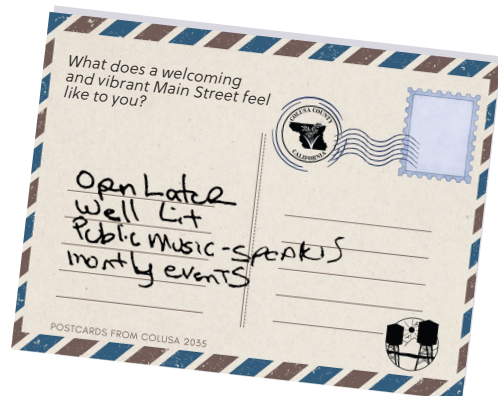 What does a welcoming
and vibrant Main Street feel
like to you?
COLUSA COUNTY
CALIFORNIA
Open Later
Well Lit
Public Music - Speakrs
montly events
POSTCARDS FROM COLUSA 2035